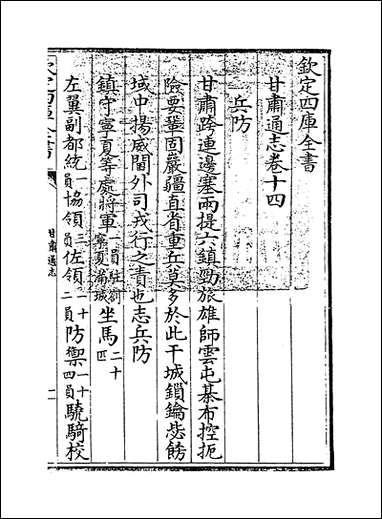 欽定四庫全書
甘肅通志卷十四
兵防
甘肅跨連邊塞兩提六鎮勁旅雄師雲屯棊布控扼
險要鞏固嚴疆直省重兵莫多於此干城鎖鑰毖飭
域中揚威閫外司戎行之責也志兵防
鎮守寧夏等處將軍一員駐劄寧夏滿城坐馬二十匹
左翼副都統一員協領三員佐領一十二員防禦一十四員驍騎校
欽定四庫全書
甘肅通志